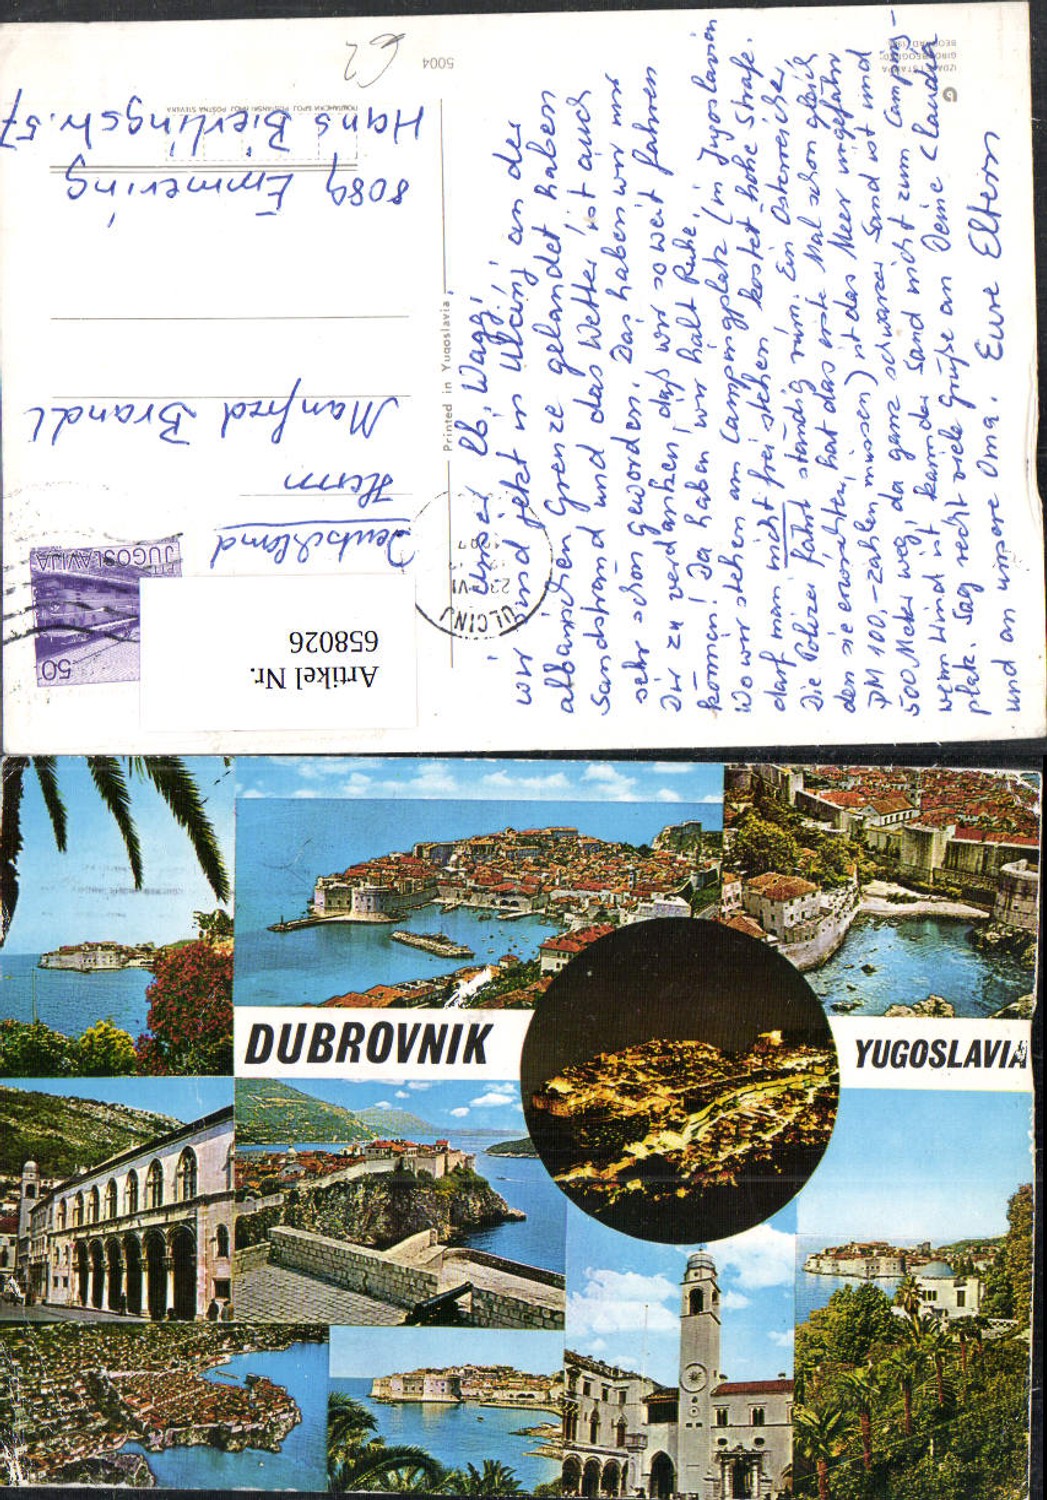 Unser lb. Wagg!
wir sind jetzt in Ulcinj an der
albanischen Grenze gelandet haben
Sandstrand und das Wetter ist auch
sehr schön geworden. Das haben wir nur
Dir zu verdanken, daß wir so weit fahren
können! Da haben wir halt Ruhe.
Wo wir stehen am Campingplatz (in Jugoslavien
darf man nicht frei stehen kostet hohe Strafe.
Die Polizei fährt ständig rum. Ein Österreicher
den sie erwischten, hat das erste Mal schon gleich
DM 100,- zahlen müssen) ist das Meer ungefähr
500 Meter weg, da ganz schwarzer Sand ist und
wenn Wind ist kann der Sand nicht zum Camping-
platz. Sag recht viele Grüße an Deine Claudia
und an unsere Oma. Eure Eltern
Deutschland
Herrn
Manfred Brandl
8089 Emmering
Hans Bierlingstr. 57
5004
€2
Printed in Yugoslavia
ПОШТАНСКИ БРОЈ POŠTANSKI BROJ POŠTNA ŠTEVILKA
G
BEOGRAD
ULCINJ
23.VI
JUGOSLAVIJA
50
Artikel Nr.
658026
DUBROVNIK
YUGOSLAVIA